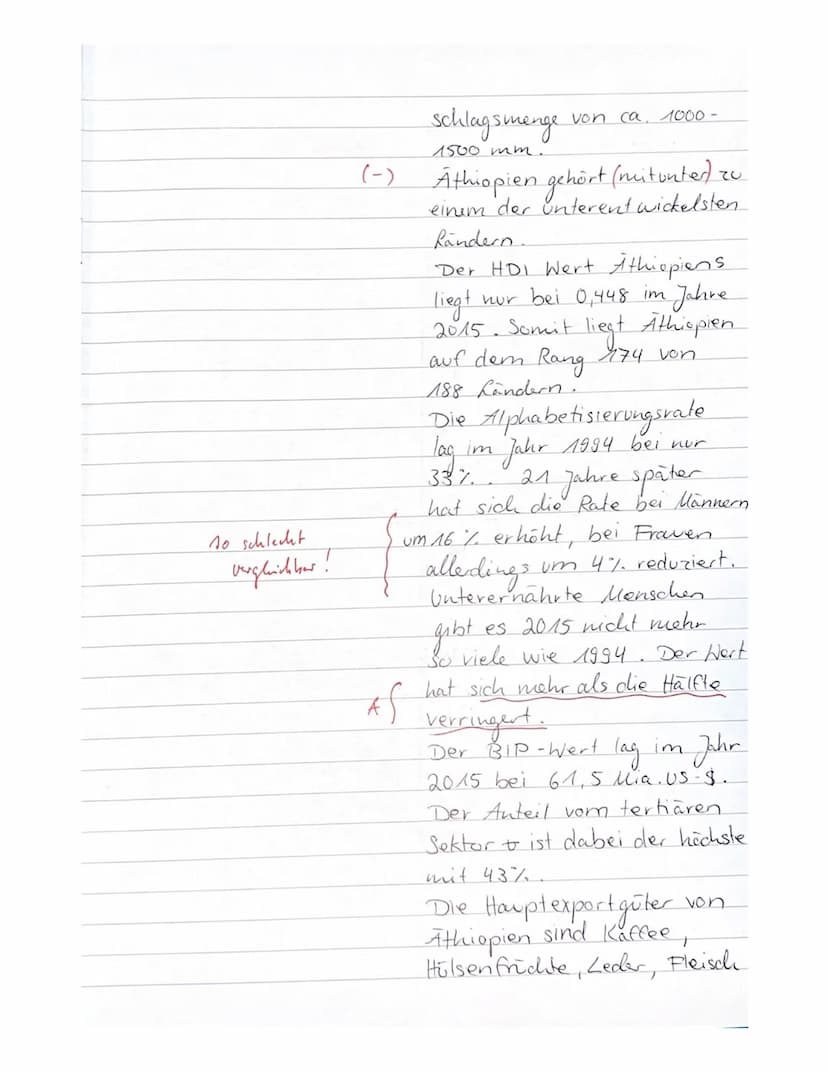 schlagsmenge von ca. 1000-
1500 mm.
(-) Äthiopien gehört (mitunter) zu
einem der unterentwickelsten
Ländern.
Der HDI Wert Äthiopiens
liegt nur bei 0,448 im Jahre
2015. Somit liegt Äthiopien
auf dem Rang 174 von
188 Ländern.
Die Alphabetisierungsrate
lag im Jahr 1994 bei nur
33%. 21 Jahre später
hat sich die Rate bei Männern
so schlecht
um 16% erhöht, bei Frauen
vergleichbar!
allerdings um 4% reduziert.
Unterernährte Menschen
gibt es 2015 nicht mehr
so viele wie 1994. Der Wert
A hat sich mehr als die Hälfte
verringert.
Der BIP-Wert lag im Jahr
2015 bei 61,5 Mia. US-$.
Der Anteil vom tertiären
Sektor ist dabei der höchste
mit 43%.
Die Hauptexportgüter von
Äthiopien sind Kaffee,
Hülsenfrüchte, Leder, Fleisch